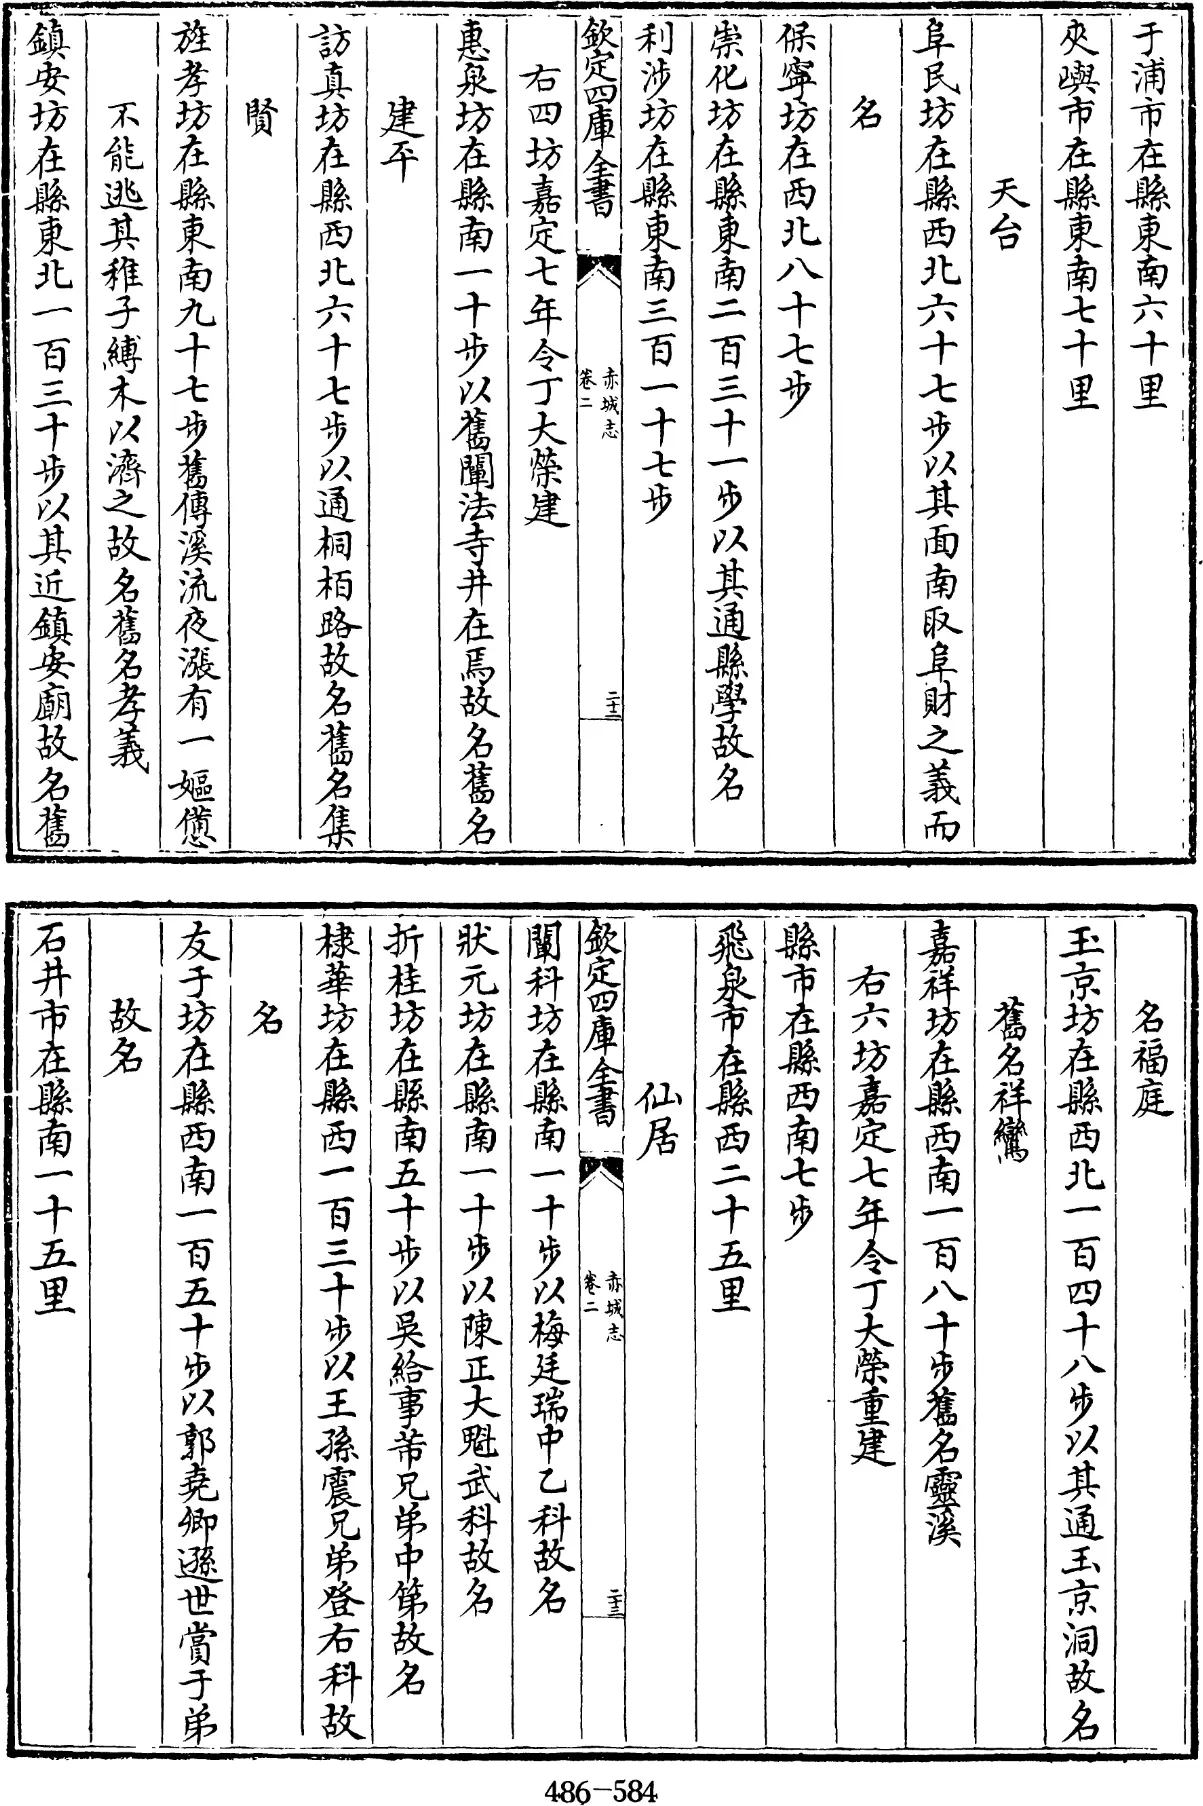 于浦市在縣東南六十里
夾嶼市在縣東南七十里
天台
阜民坊在縣西北六十七步以其面南取阜財之義而
名
保寧坊在西北八十七步
崇化坊在縣東南二百三十一步以其通縣學故名
利涉坊在縣東南三百一十七步
欽定四庫全書
赤城志
卷二
二十二
右四坊嘉定七年令丁大榮建
惠泉坊在縣南一十步以舊闡法寺井在焉故名舊名
建平
訪真坊在縣西北六十七步以通桐栢路故名舊名集
賢
旌孝坊在縣東南九十七步舊傳溪流夜漲有一嫗憊
不能逃其稚子縛木以濟之故名舊名孝義
鎮安坊在縣東北一百三十步以其近鎮安廟故名舊
名福庭
玉京坊在縣西北一百四十八步以其通玉京洞故名
舊名祥鸞
嘉祥坊在縣西南一百八十步舊名靈溪
右六坊嘉定七年令丁大榮重建
縣市在縣西南七步
飛泉市在縣西二十五里
仙居
欽定四庫全書
赤城志
卷二
二十三
闡科坊在縣南一十步以梅廷瑞中乙科故名
狀元坊在縣南一十步以陳正大魁武科故名
折桂坊在縣南五十步以吳給事芾兄弟中第故名
棣華坊在縣西一百三十步以王孫震兄弟登右科故
名
友于坊在縣西南一百五十步以郭堯卿遜世賞于弟
故名
石井市在縣南一十五里
486-584